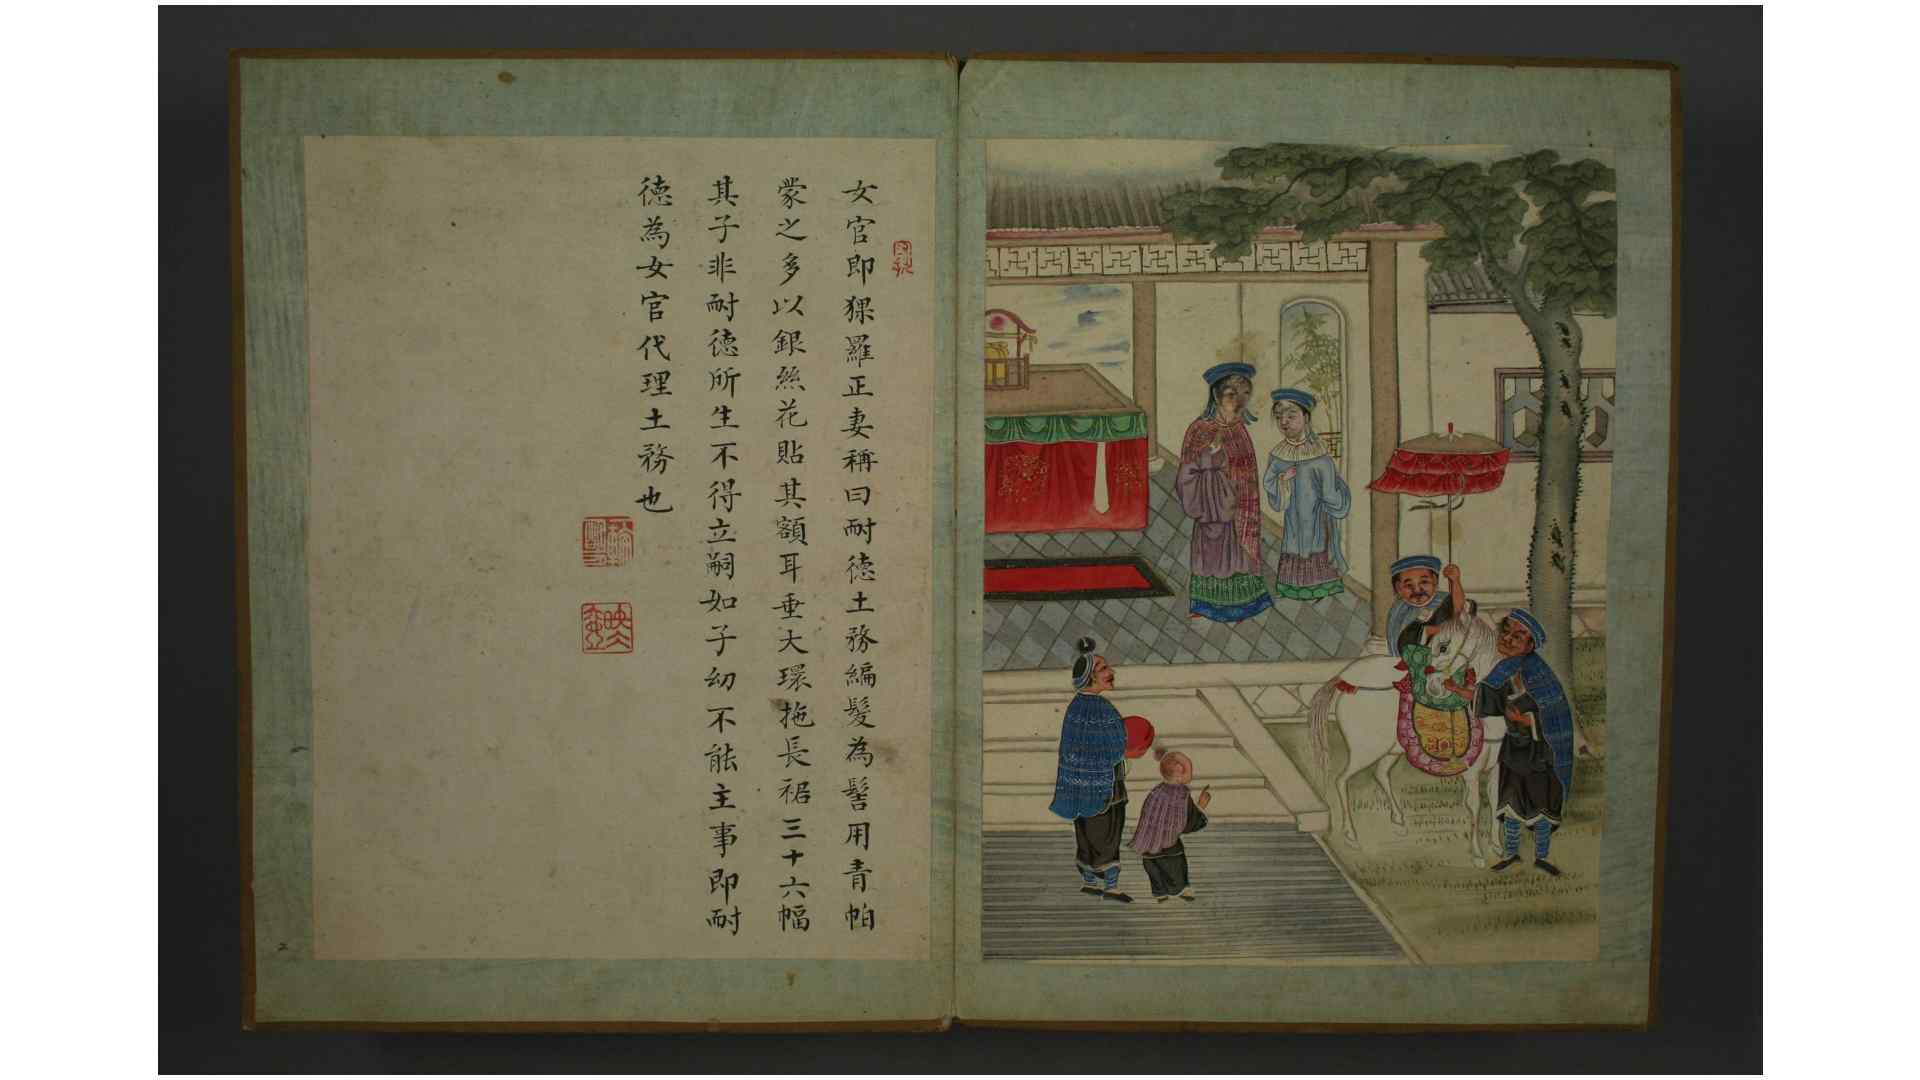 女官即猓羅正妻稱曰耐德土務編髮為髻用青帕
蒙之多以銀絲花貼其額耳垂大環拖長裾三十六幅
其子非耐德所生不得立嗣如子幼不能主事即耐
德為女官代理土務也